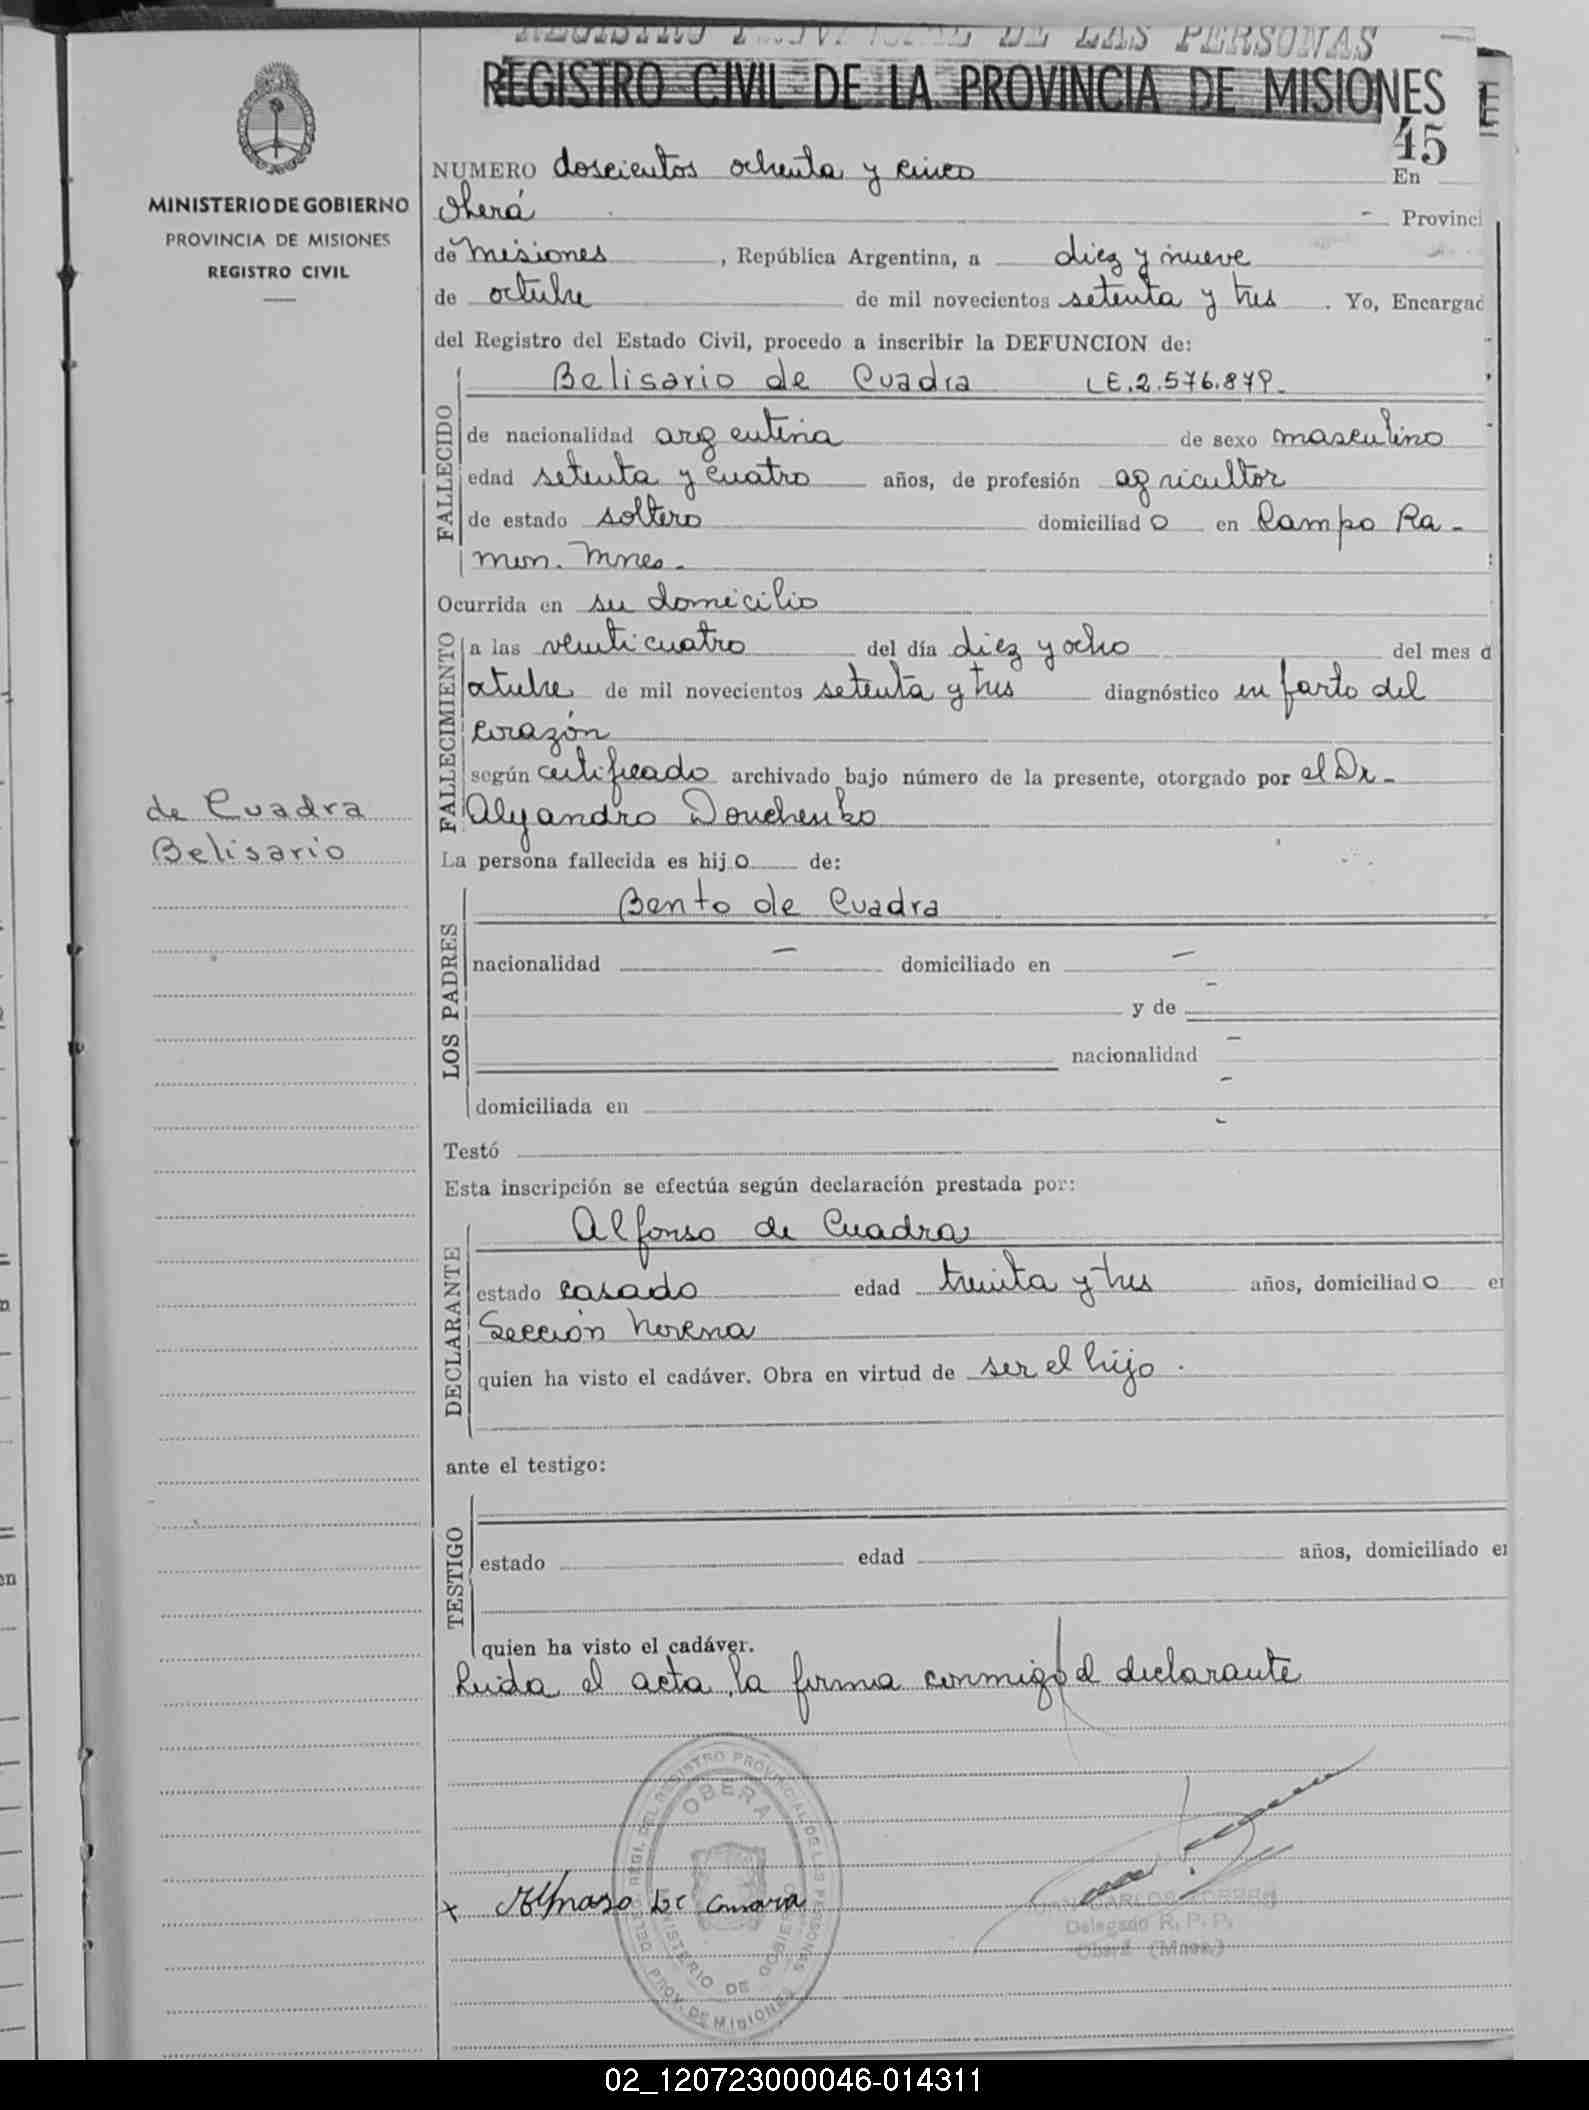 REGISTRO PROVINCIAL DE LAS PERSONAS
REGISTRO CIVIL DE LA PROVINCIA DE MISIONES
45
MINISTERIO DE GOBIERNO
PROVINCIA DE MISIONES
REGISTRO CIVIL
NUMERO doscientos ochenta y cinco En
Oberá - Provinci
de Misiones, República Argentina, a diez y nueve
de octubre de mil novecientos setenta y tres. Yo, Encargad
del Registro del Estado Civil, procedo a inscribir la DEFUNCION de:
FALLECIDO
Belisario de Cuadra L.E. 2.576.879.-
de nacionalidad argentina de sexo masculino
edad setenta y cuatro años, de profesión agricultor
de estado soltero domiciliado en Campo Ra-
mon. Mnes.-
Ocurrida en su domicilio
FALLECIMIENTO
a las veinticuatro del día diez y ocho del mes d
octubre de mil novecientos setenta y tres diagnóstico infarto del
corazón
según certificado archivado bajo número de la presente, otorgado por el Dr.-
Alejandro Douchenko
de Cuadra
Belisario
La persona fallecida es hijo de:
LOS PADRES
Bento de Cuadra
nacionalidad - domiciliado en -
- y de
nacionalidad -
domiciliada en -
Testó -
Esta inscripción se efectúa según declaración prestada por:
DECLARANTE
Alfonso de Cuadra
estado casado edad treinta y tres años, domiciliado e
Sección
quien ha visto el cadáver. Obra en virtud de ser el hijo.
ante el testigo:
TESTIGO
estado edad años, domiciliado e
quien ha visto el cadáver.
Leida el acta, la firma conmigo el declarante
DELEG. REGI. DEL REGISTRO PROVINCIAL DE LAS PERSONAS
OBERA
MINISTERIO DE GOBIERNO
PROV. DE MISIONES
x
JUAN CARLOS
Delegado R. P. P.
Oberá (Mnes.)
02_120723000046-014311